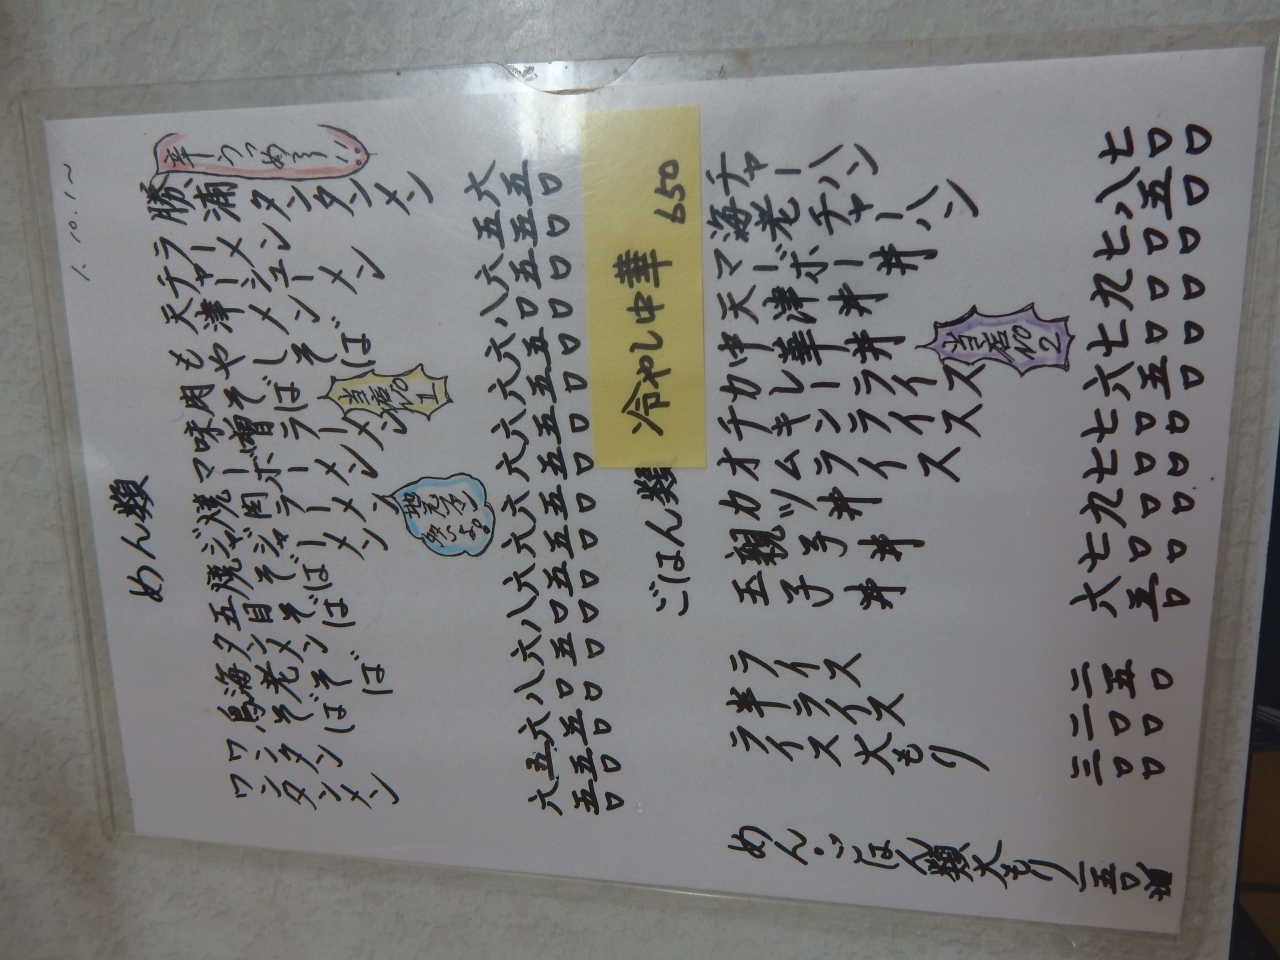 1.10.1～
めん類
勝浦タンタンメン 六五〇
ラーメン 五五〇
チャーシューメン 六五〇
天津メン 八〇〇
もやしそば 六五〇
肉そば 六五〇
味噌ラーメン 六五〇
マーボーラーメン 六五〇
焼肉ラーメン 六五〇
ジャジャーメン 六五〇
焼そば 六五〇
五目そば 八〇〇
タンメン 六五〇
海老そば 八〇〇
鳥そば 六五〇
ワンタン 五五〇
ワンタンメン 六五〇
当店No1
冷やし中華 650
ごはん類
チャーハン 七〇〇
海老チャーハン 八五〇
マーボー丼 七〇〇
天津丼 九〇〇
中華丼 七〇〇
カレーライス 六五〇
チキンライス 七〇〇
オムライス 七〇〇
カツ丼 九〇〇
親子丼 七〇〇
玉子丼 六五〇
当店No2
ライス 二五〇
半ライス 二〇〇
ライス大もり 三〇〇
めん・ごはん類大もり一五〇増